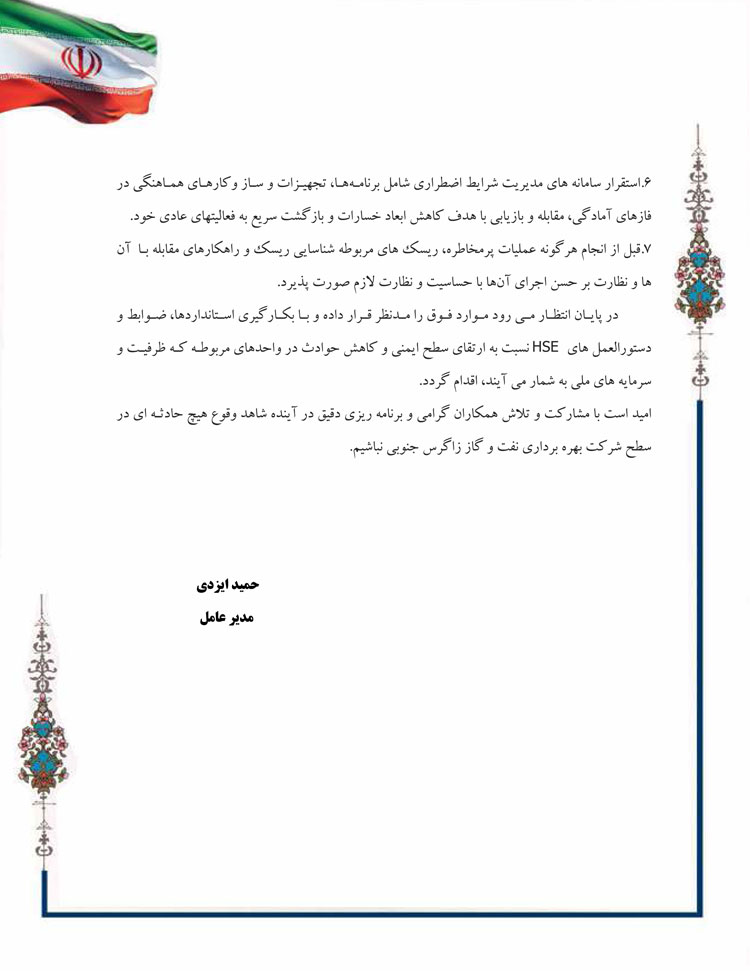 ۶.استقرار سامانه های مدیریت شرایط اضطراری شامل برنامه‌ها، تجهیزات و ساز وکارهای هماهنگی در
فازهای آمادگی، مقابله و بازیابی با هدف کاهش ابعاد خسارات و بازگشت سریع به فعالیتهای عادی خود.
۷.قبل از انجام هرگونه عملیات پرمخاطره، ریسک های مربوطه شناسایی ریسک و راهکارهای مقابله با آن
ها و نظارت بر حسن اجرای آن‌ها با حساسیت و نظارت لازم صورت پذیرد.
در پایان انتظار می رود موارد فوق را مدنظر قرار داده و با بکارگیری استانداردها، ضوابط و
دستورالعمل های HSE نسبت به ارتقای سطح ایمنی و کاهش حوادث در واحدهای مربوطه که ظرفیت و
سرمایه های ملی به شمار می آیند، اقدام گردد.
امید است با مشارکت و تلاش همکاران گرامی و برنامه ریزی دقیق در آینده شاهد وقوع هیچ حادثه ای در
سطح شرکت بهره برداری نفت و گاز زاگرس جنوبی نباشیم.
حمید ایزدی
مدیر عامل